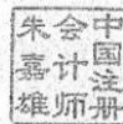 中国注册
会计师
朱嘉雄